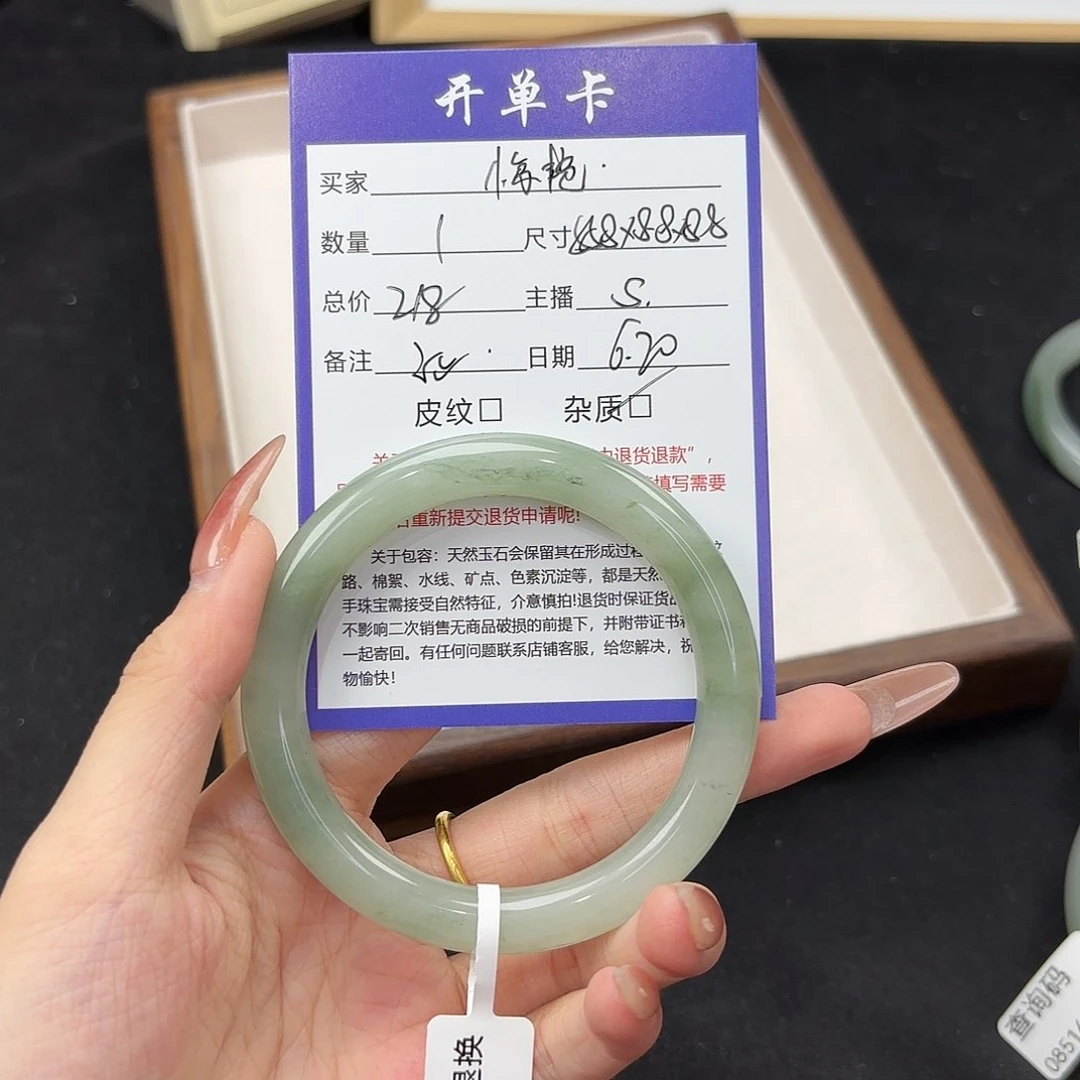 开单卡
买家
数量 1 尺寸
总价 218 主播 S.
备注 日期 6.20
皮纹□ 杂质□
退货退款”，
填写需要
重新提交退货申请呢!
关于包容：天然玉石会保留其在形成过程
路、棉絮、水线、矿点、色素沉淀等，都是天然
手珠宝需接受自然特征，介意慎拍!退货时保证货品
不影响二次销售无商品破损的前提下，并附带证书
一起寄回。有任何问题联系店铺客服，给您解决，祝
物愉快!
退换
查询码
0851